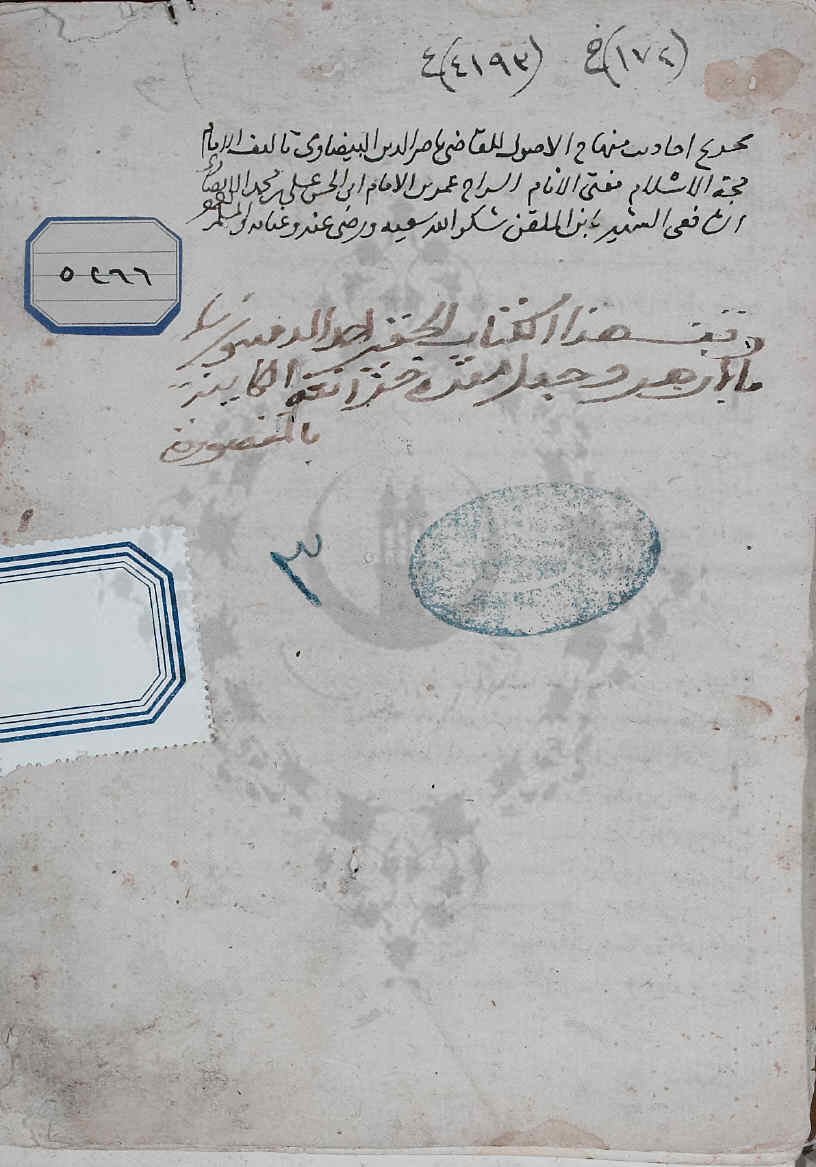 (١٧٤) خ (٤١٩٣) ع
تخريج احاديث منهاج الاصول للقاضي ناصر الدين البيضاوي تاليف الامام
حجة الاسلام مفتي الانام السراج عمر بن الامام ابى الحسن علي بن محمد الانصاري
الشافعي الشهير بابن الملقن شكر الله سعيه ورضى عنه وعنا به والمسلمين
٥٢٦٦
وقف هذا الكتاب الحقير احمد الدمنهوري
بالازهر وجعل مقره خزانته الكاينة
بالمقصورة
٣